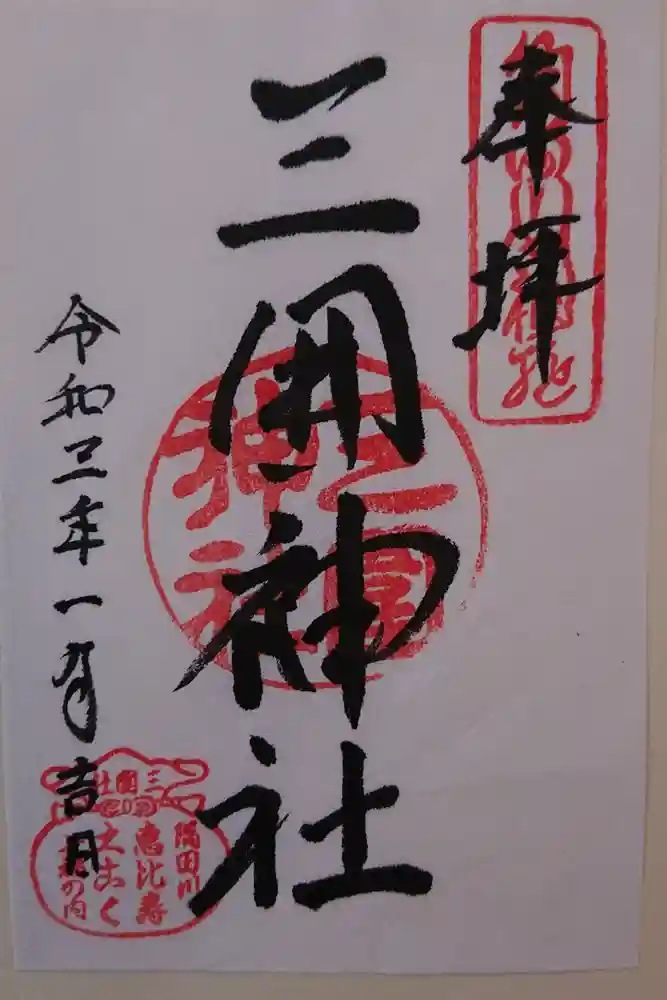 奉拝
三囲神社
三圍神社
令和三年一月吉日
三囲社
隅田川
恵比寿
大こく